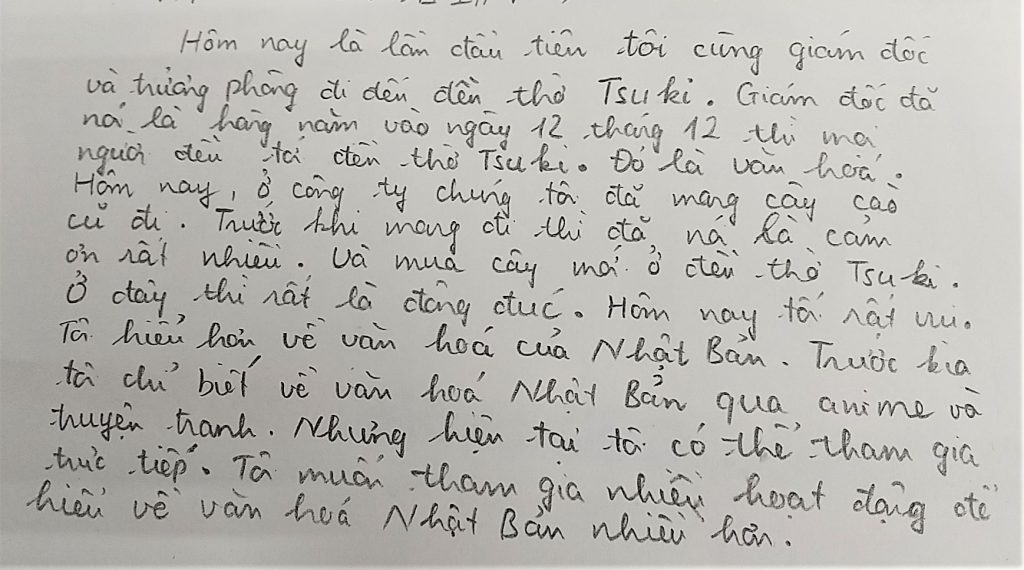 Hôm nay là lần đầu tiên tôi cùng giám đốc
và trưởng phòng đi đến đền thờ Tsuki. Giám đốc đã
nói là hàng năm vào ngày 12 tháng 12 thì mọi
người đến tại đền thờ Tsuki. Đó là văn hoá.
Hôm nay, ở công ty chúng tôi đã mang cây cào
cũ đi. Trước khi mang đi thì đã nói là cảm
ơn rất nhiều. Và mua cây mới ở đền thờ Tsuki.
Ở đây thì rất là đông đúc. Hôm nay tôi rất vui.
Tôi hiểu hơn về văn hoá của Nhật Bản. Trước kia
tôi chỉ biết về văn hoá Nhật Bản qua anime và
truyện tranh. Nhưng hiện tại tôi có thể tham gia
trực tiếp. Tôi muốn tham gia nhiều hoạt động để
hiểu về văn hoá Nhật Bản nhiều hơn.